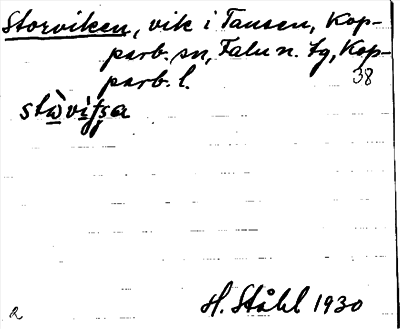 Storviken, vik i Tansen, Kop-
parb. sn, Falu n. tg, Kop-
parb. l.
38
H. Ståhl 1930
R